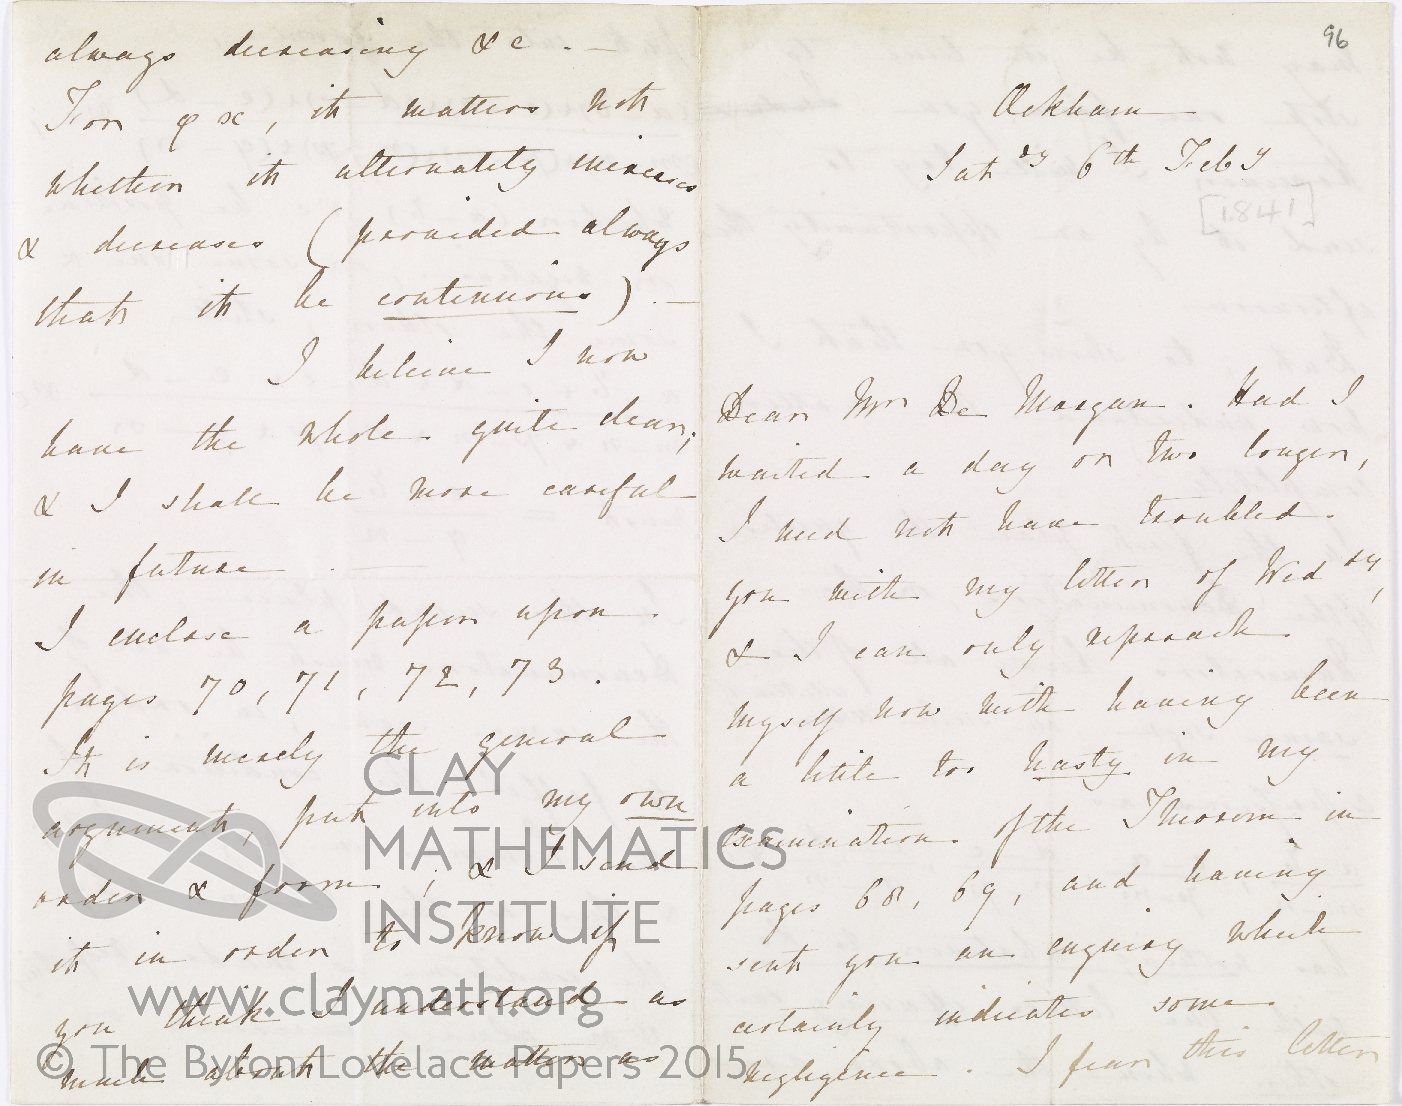 always decreasing &c. —
For φx, it matters not
whether it alternately increases
& decreases (provided always
that it be continuous). —
I believe I now
have the whole quite clear,
& I shall be more careful
in future. —
I enclose a paper upon
pages 70, 71, 72, 73.
It is merely the general
argument, put into my own
order & form; & I send
it in order to know if
you think I understand as
much about the matter as
96
Ockham
Sat dy 6th Feby
[1841]
Dear Mr De Morgan. Had I
waited a day or two longer,
I need not have troubled
you with my letter of Wed dy,
& I can only reproach
myself now with having been
a little too hasty in my
examination of the Theorem in
pages 68, 69, and having
sent you an enquiry which
certainly indicates some
negligence. I fear this letter
CLAY
MATHEMATICS
INSTITUTE
www.claymath.org
© The Byron Lovelace Papers 2015